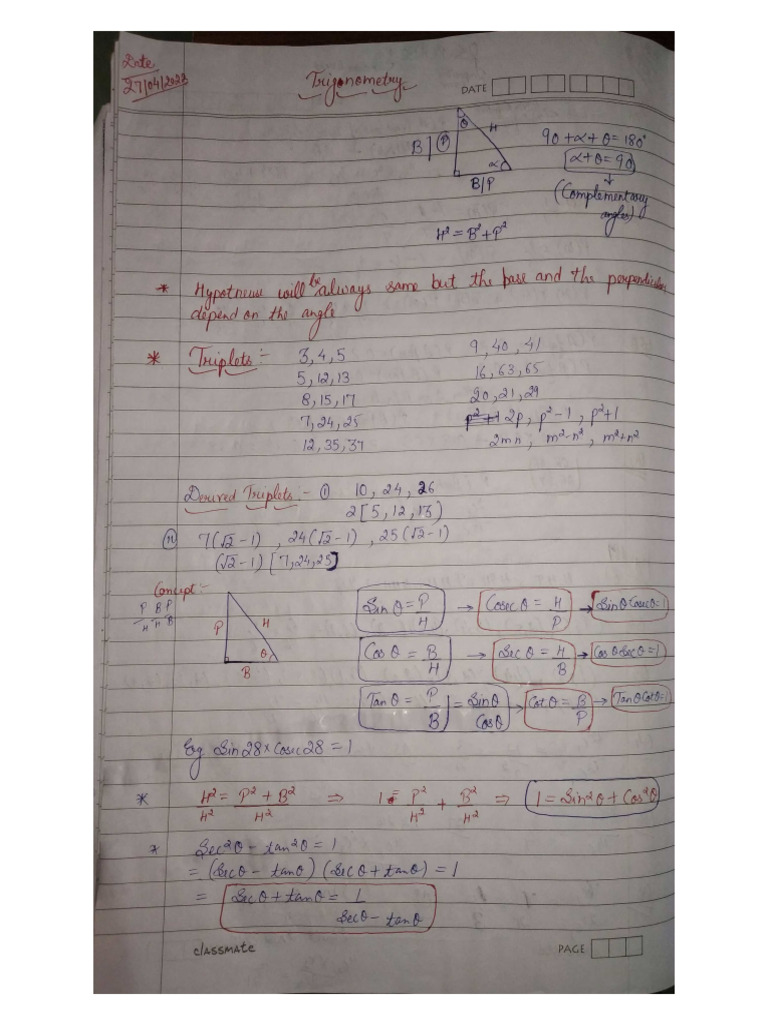 Date
27/04/2023
Trigonometry
DATE
θ
H
B | P
α
B/P
90 + α + θ = 180°
α + θ = 90
↓
(Complementary
angles)
H² = B² + P²
* Hypotneuse will be always same but the base and the perpendicular
depend on the angle
* Triplets :- 3, 4, 5 9, 40, 41
5, 12, 13 16, 63, 65
8, 15, 17 20, 21, 29
7, 24, 25 2p, p²-1, p²+1
12, 35, 37 2mn, m²-n², m²+n²
Derived Triplets :- ① 10, 24, 26
2[5, 12, 13)
ⓘⓘ 7(√2-1), 24(√2-1), 25(√2-1)
(√2-1) [7, 24, 25]
Concept :-
P B P
H H B
P
H
θ
B
Sinθ = P/H → Cosecθ = H/P → Sinθ Cosecθ=1
Cosθ = B/H → Secθ = H/B → Cosθ Secθ=1
Tanθ = P/B = Sinθ/Cosθ → Cotθ = B/P → Tanθ Cotθ=1
Eg Sin28 × Cosec28 = 1
* H²/H² = P²+B²/H² ⇒ 1 = P²/H² + B²/H² ⇒ 1 = Sin²θ + Cos²θ
* Sec²θ - tan²θ = 1
= (Secθ - tanθ) (Secθ + tanθ) = 1
= Secθ + tanθ = 1
Secθ - tanθ
classmate
PAGE